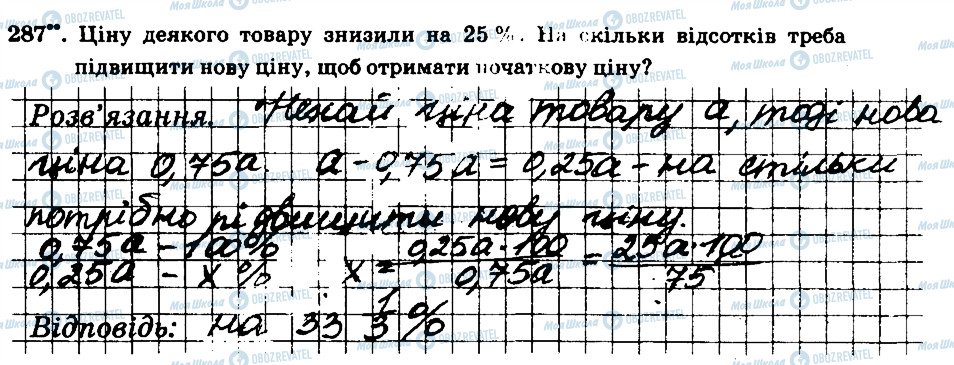 287**. Ціну деякого товару знизили на 25 %. На скільки відсотків треба
підвищити нову ціну, щоб отримати початкову ціну?
Розв'язання. Нехай ціна товару a, тоді нова
ціна 0,75a a - 0,75a = 0,25a - на стільки
потрібно підвищити нову ціну.
0,75a - 100% 0,25a·100 = 25a·100
0,25a - x % x = 0,75a 75
Відповідь: на 33 1/3 %